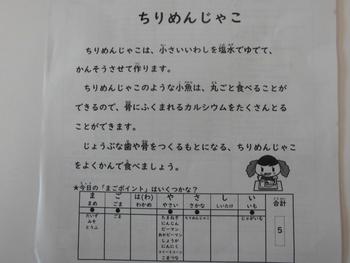 ちりめんじゃこ
ちりめんじゃこは、小さいいわしを塩水でゆでて、
かんそうさせて作ります。
ちりめんじゃこのような小魚は、丸ごと食べることが
できるので、骨にふくまれるカルシウムをたくさんとる
ことができます。
じょうぶな歯や骨をつくるもとになる、ちりめんじゃこ
をよくかんで食べましょう。
★今日の「まごポイント」はいくつかな?
ま ご は(わ) や さ し い 合計
まめ ごま わかめ やさい さかな しいたけ いも
● ● ● ● ●
だいず ごま たまねぎ ちりめんじゃこ じゃがいも 5
みそ にんじん
とうふ ピーマン
あかピーマン
しょうが
にんにく
こまつな